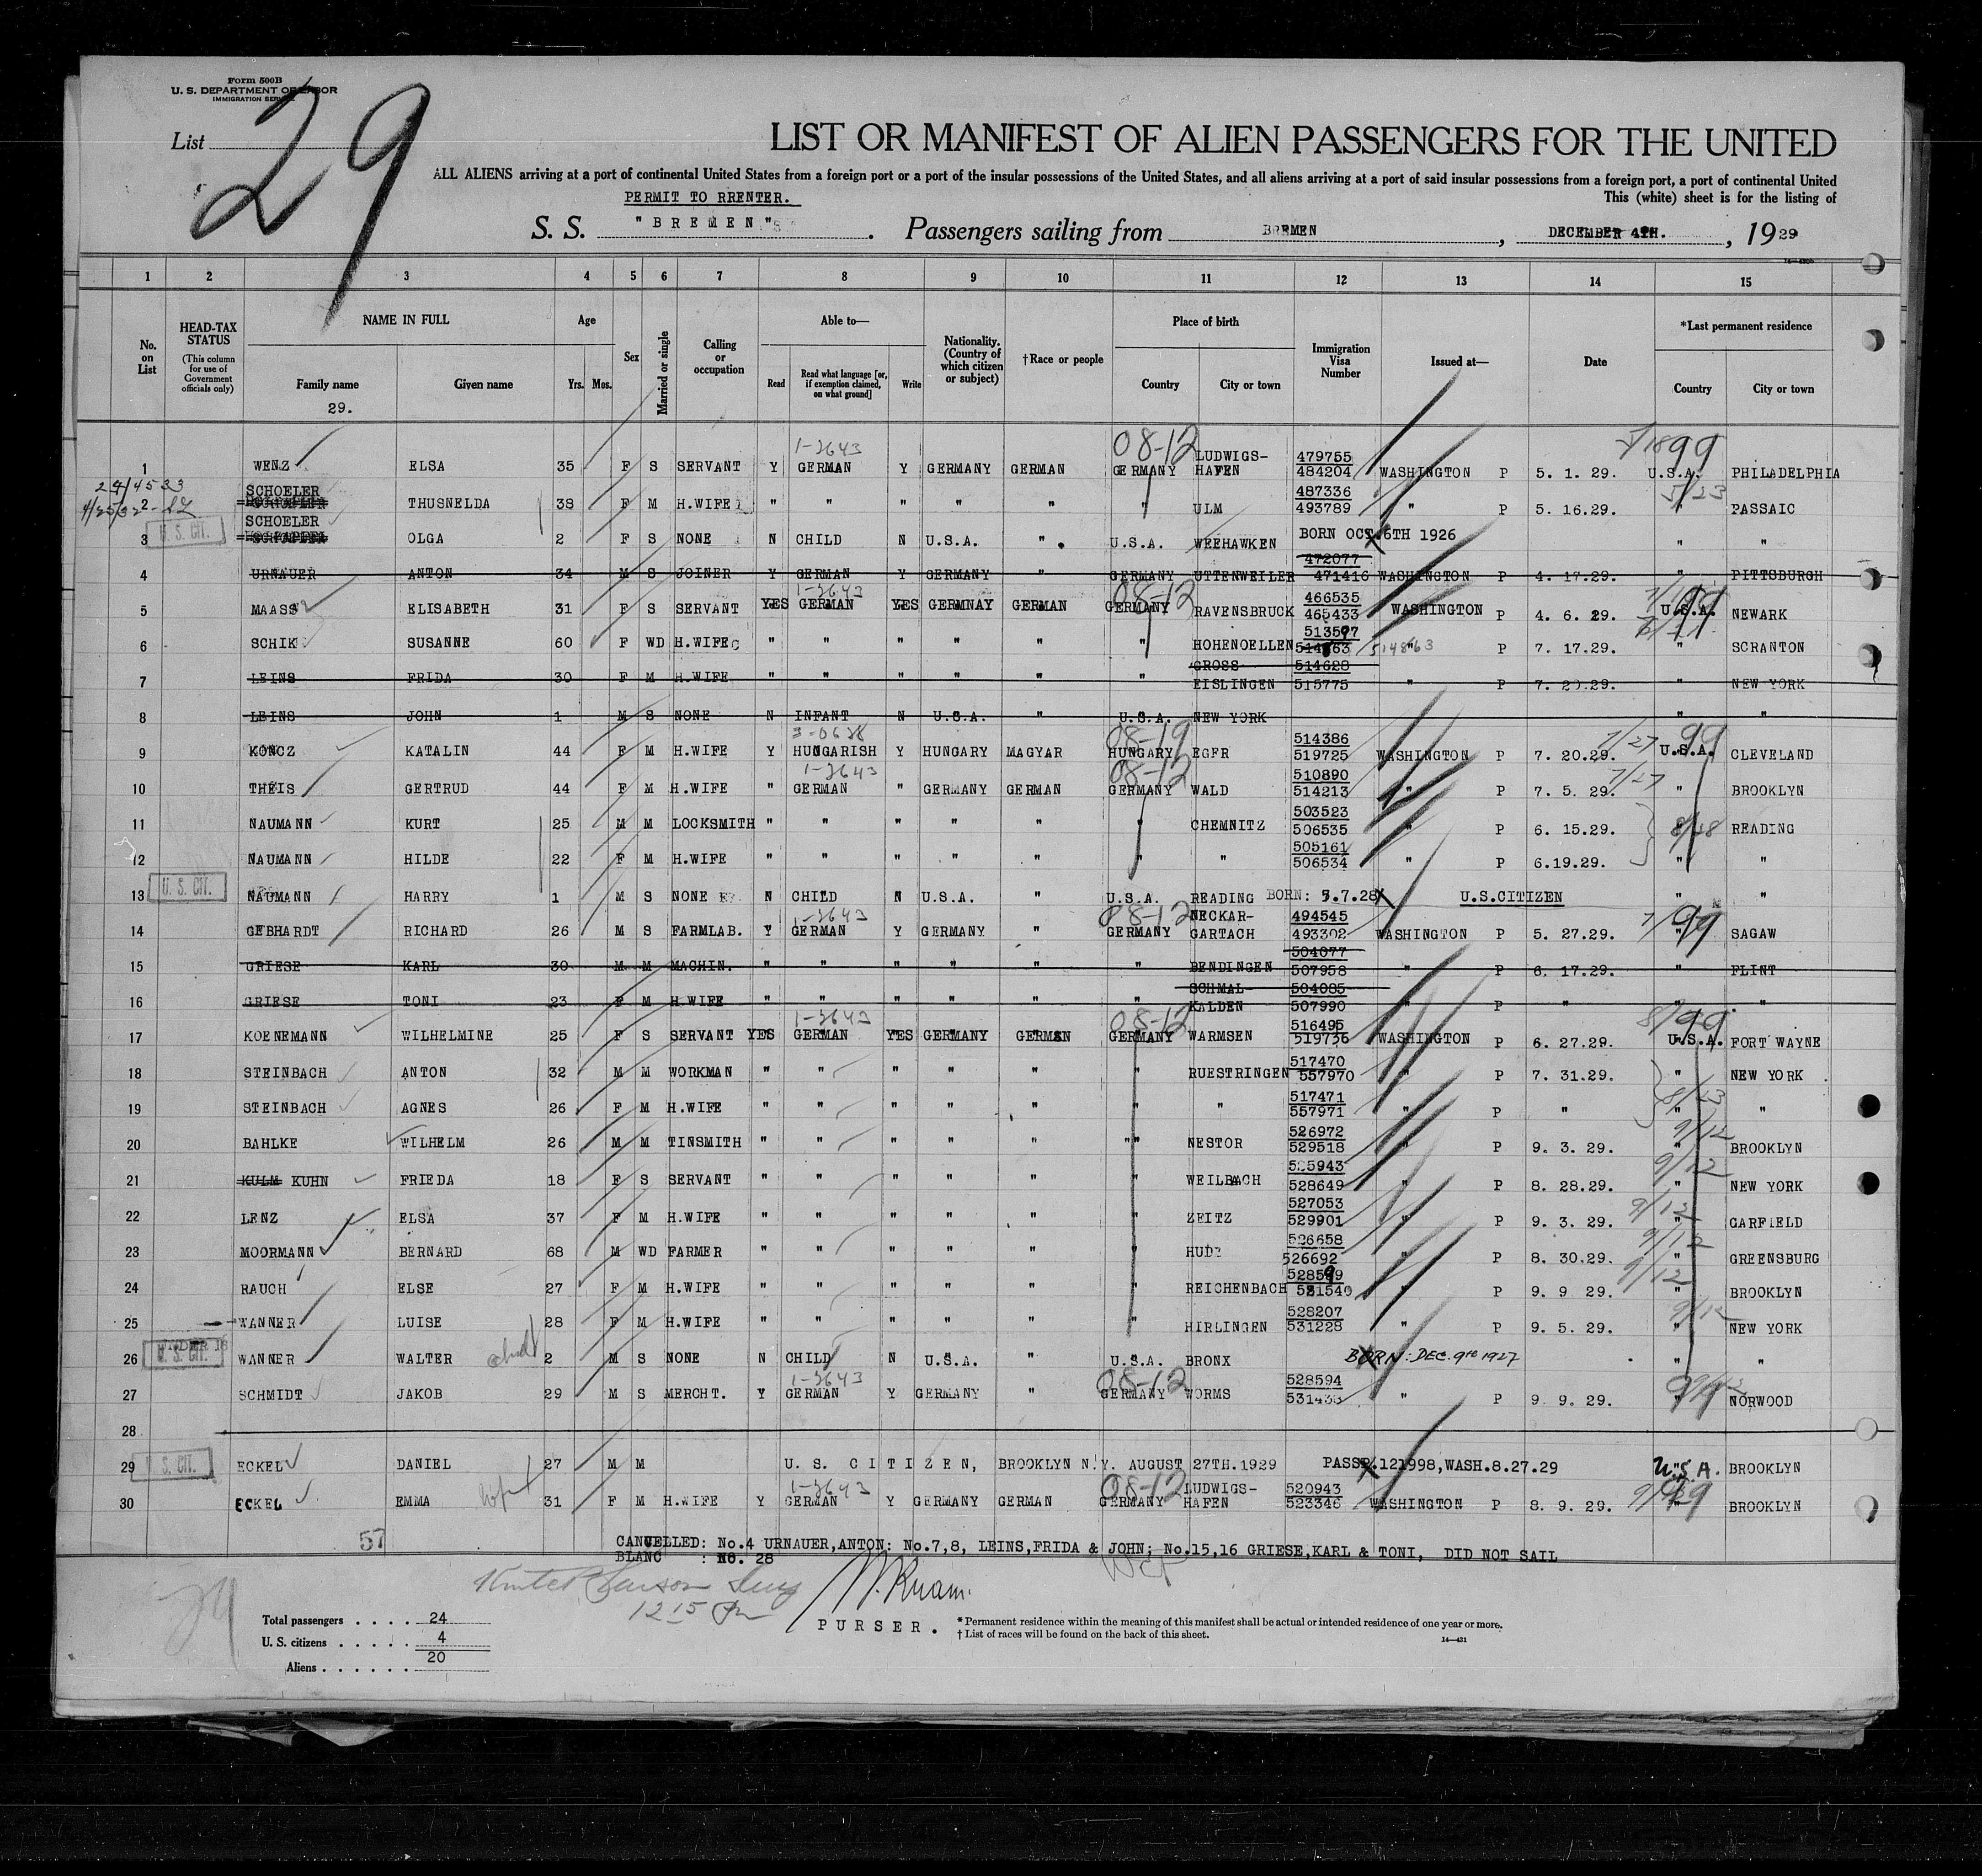 Form 500B
U. S. DEPARTMENT OF LABOR
IMMIGRATION SERVICE
List 29
LIST OR MANIFEST OF ALIEN PASSENGERS FOR THE UNITED
ALL ALIENS arriving at a port of continental United States from a foreign port or a port of the insular possessions of the United States, and all aliens arriving at a port of said insular possessions from a foreign port, a port of continental United
PERMIT TO RRENTER. This (white) sheet is for the listing of
S. S. "BREMEN". Passengers sailing from BREMEN, DECEMBER 4TH., 1929
1 2 3 4 5 6 7 8 9 10 11 12 13 14 15
No. on List HEAD-TAX STATUS (This column for use of Government officials only) NAME IN FULL Family name Given name Age Yrs. Mos. Sex Married or single Calling or occupation Able to— Read Read what language [or, if exemption claimed, on what ground] Write Nationality. (Country of which citizen or subject) †Race or people Place of birth Country City or town Immigration Visa Number Issued at— Date *Last permanent residence Country City or town
29.
1-2643 08-12 99
1 WENZ ELSA 35 F S SERVANT Y GERMAN Y GERMANY GERMAN GERMANY LUDWIGS-HAFEN 479755 484204 WASHINGTON P 5. 1. 29. U.S.A. PHILADELPHIA
2 SCHOELER THUSNELDA 38 F M H.WIFE " " " " " " ULM 487336 493789 " P 5. 16.29. " PASSAIC
U. S. CIT.
3 SCHOELER OLGA 2 F S NONE N CHILD N U.S.A. " U.S.A. WEEHAWKEN BORN OCT 6TH 1926 " "
4 URNAUER ANTON 34 M S JOINER Y GERMAN Y GERMANY " GERMANY UTTENWEILER 472077 471416 WASHINGTON P 4. 17.29. " PITTSBURGH
1-2643 08-12
5 MAASS ELISABETH 31 F S SERVANT YES GERMAN YES GERMNAY GERMAN GERMANY RAVENSBRUCK 466535 465433 WASHINGTON P 4. 6. 29. U.S.A. NEWARK
6 SCHIK SUSANNE 60 F WD H.WIFE " " " " " " HOHENOELLEN 513597 514863 " P 7. 17.29. " SCRANTON
7 LEINS FRIDA 30 F M H.WIFE " " " " " " GROSS EISLINGEN 514628 515775 " P 7. 20.29. " NEW YORK
8 LEINS JOHN 1 M S NONE N INFANT N U.S.A. " U.S.A. NEW YORK " "
08-19 99
9 KONCZ KATALIN 44 F M H.WIFE Y HUNGARISH Y HUNGARY MAGYAR HUNGARY EGFR 514386 519725 WASHINGTON P 7. 20.29. U.S.A. CLEVELAND
1-2643 08-12
10 THEIS GERTRUD 44 F M H.WIFE " GERMAN " GERMANY GERMAN GERMANY WALD 510890 514213 " P 7. 5. 29. " BROOKLYN
11 NAUMANN KURT 25 M M LOCKSMITH " " " " " " CHEMNITZ 503523 506535 " P 6. 15.29. " READING
12 NAUMANN HILDE 22 F M H.WIFE " " " " " " " 505161 506534 " P 6.19.29. " "
U. S. CIT.
13 NAUMANN HARRY 1 M S NONE N CHILD N U.S.A. " U.S.A. READING BORN: 5.7.28 U.S.CITIZEN " "
1-2643 08-12 99
14 GEBHARDT RICHARD 26 M S FARMLAB. Y GERMAN Y GERMANY " GERMANY NECKAR-GARTACH 494545 493302 WASHINGTON P 5. 27.29. " SAGAW
15 GRIESE KARL 30 M M MACHIN. " " " " " " BENDINGEN 504077 507958 " P 6. 17.29. " FLINT
16 GRIESE TONI 23 F M H WIFE " " " " " " SCHMAL-KALDEN 504085 507990 " P " " "
1-2643 08-12 99
17 KOENEMANN WILHELMINE 25 F S SERVANT YES GERMAN YES GERMANY GERMAN GERMANY WARMSEN 516495 519736 WASHINGTON P 6. 27.29. U.S.A. FORT WAYNE
18 STEINBACH ANTON 32 M M WORKMAN " " " " " " RUESTRINGEN 517470 557970 " P 7. 31.29. " NEW YORK
19 STEINBACH AGNES 26 F M H.WIFE " " " " " " " 517471 557971 " P " " "
20 BAHLKE WILHELM 26 M M TINSMITH " " " " " " NESTOR 526972 529518 " P 9. 3. 29. " BROOKLYN
21 KULM KUHN FRIEDA 18 F S SERVANT " " " " " " WEILBACH 525943 528649 " P 8. 28.29. " NEW YORK
22 LENZ ELSA 37 F M H.WIFE " " " " " " ZEITZ 527053 529901 " P 9. 3. 29. " GARFIELD
23 MOORMANN BERNARD 68 M WD FARMER " " " " " " HUDE 526658 526692 " P 8. 30.29. " GREENSBURG
24 RAUCH ELSE 27 F M H.WIFE " " " " " " REICHENBACH 528599 531540 " P 9. 9 29. " BROOKLYN
25 WANNER LUISE 28 F M H.WIFE " " " " " " HIRLINGEN 528207 531228 " P 9. 5. 29. " NEW YORK
UNDER 16
U. S. CIT.
26 WANNER WALTER child 2 M S NONE N CHILD N U.S.A. " U.S.A. BRONX BORN: DEC. 9th 1927 " "
1-2643 08-12
27 SCHMIDT JAKOB 29 M S MERCHT. Y GERMAN Y GERMANY " GERMANY WORMS 528594 531433 " P 9 9. 29. " NORWOOD
28
U. S. CIT.
29 ECKEL DANIEL 27 M M U. S. CITIZEN, BROOKLYN N.Y. AUGUST 27TH.1929 PASSP.121998,WASH.8.27.29 U.S.A. BROOKLYN
1-2643 08-12
30 ECKEL EMMA 31 F M H.WIFE Y GERMAN Y GERMANY GERMAN GERMANY LUDWIGS-HAFEN 520943 523346 WASHINGTON P 8. 9. 29. " BROOKLYN
57 CANCELLED: No.4 URNAUER,ANTON: No.7,8, LEINS,FRIDA & JOHN; No.15,16 GRIESE,KARL & TONI, DID NOT SAIL
BLANC : NO. 28
12 15 Pm
PURSER.
Total passengers . . . . 24
U. S. citizens . . . . . 4
Aliens . . . . . . 20
* Permanent residence within the meaning of this manifest shall be actual or intended residence of one year or more.
† List of races will be found on the back of this sheet.
14—431